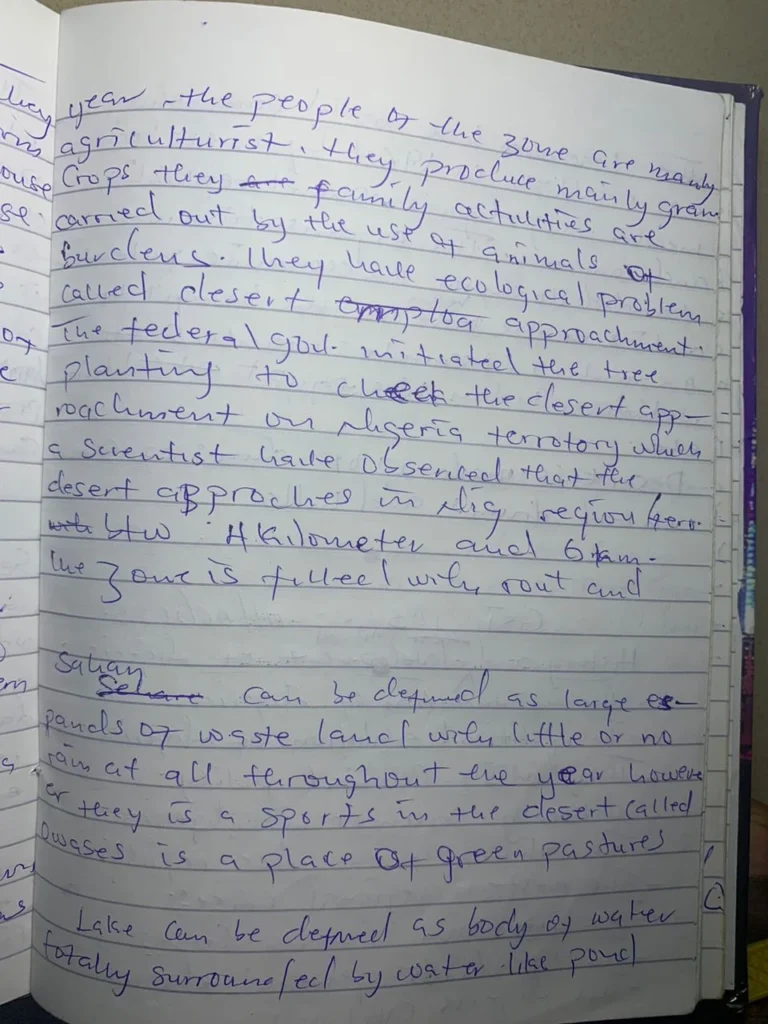 year, the people of the zone are manly
agriculturist. they produce mainly grain
Crops they are family actulities are
carried out by the use of animals of
burdens. They have ecological problem
called desert approachment.
The federal govt. initiated the tree
planting to check the desert app-
roachment on Nigeria terrotory which
a Scientist have observed that the
desert approches in Nig region
btw 4kilometer and 6km.
The Zone is filled with rout and
Sahan
Sahare can be defined as large es-
pands of waste land with little or no
rain at all throughout the year howeve
er they is a sports in the desert called
Owases is a place of green pastures
Lake can be defined as body of water
totally surrounded by water like pond
they
rins
ouse
se.
of
e
ern